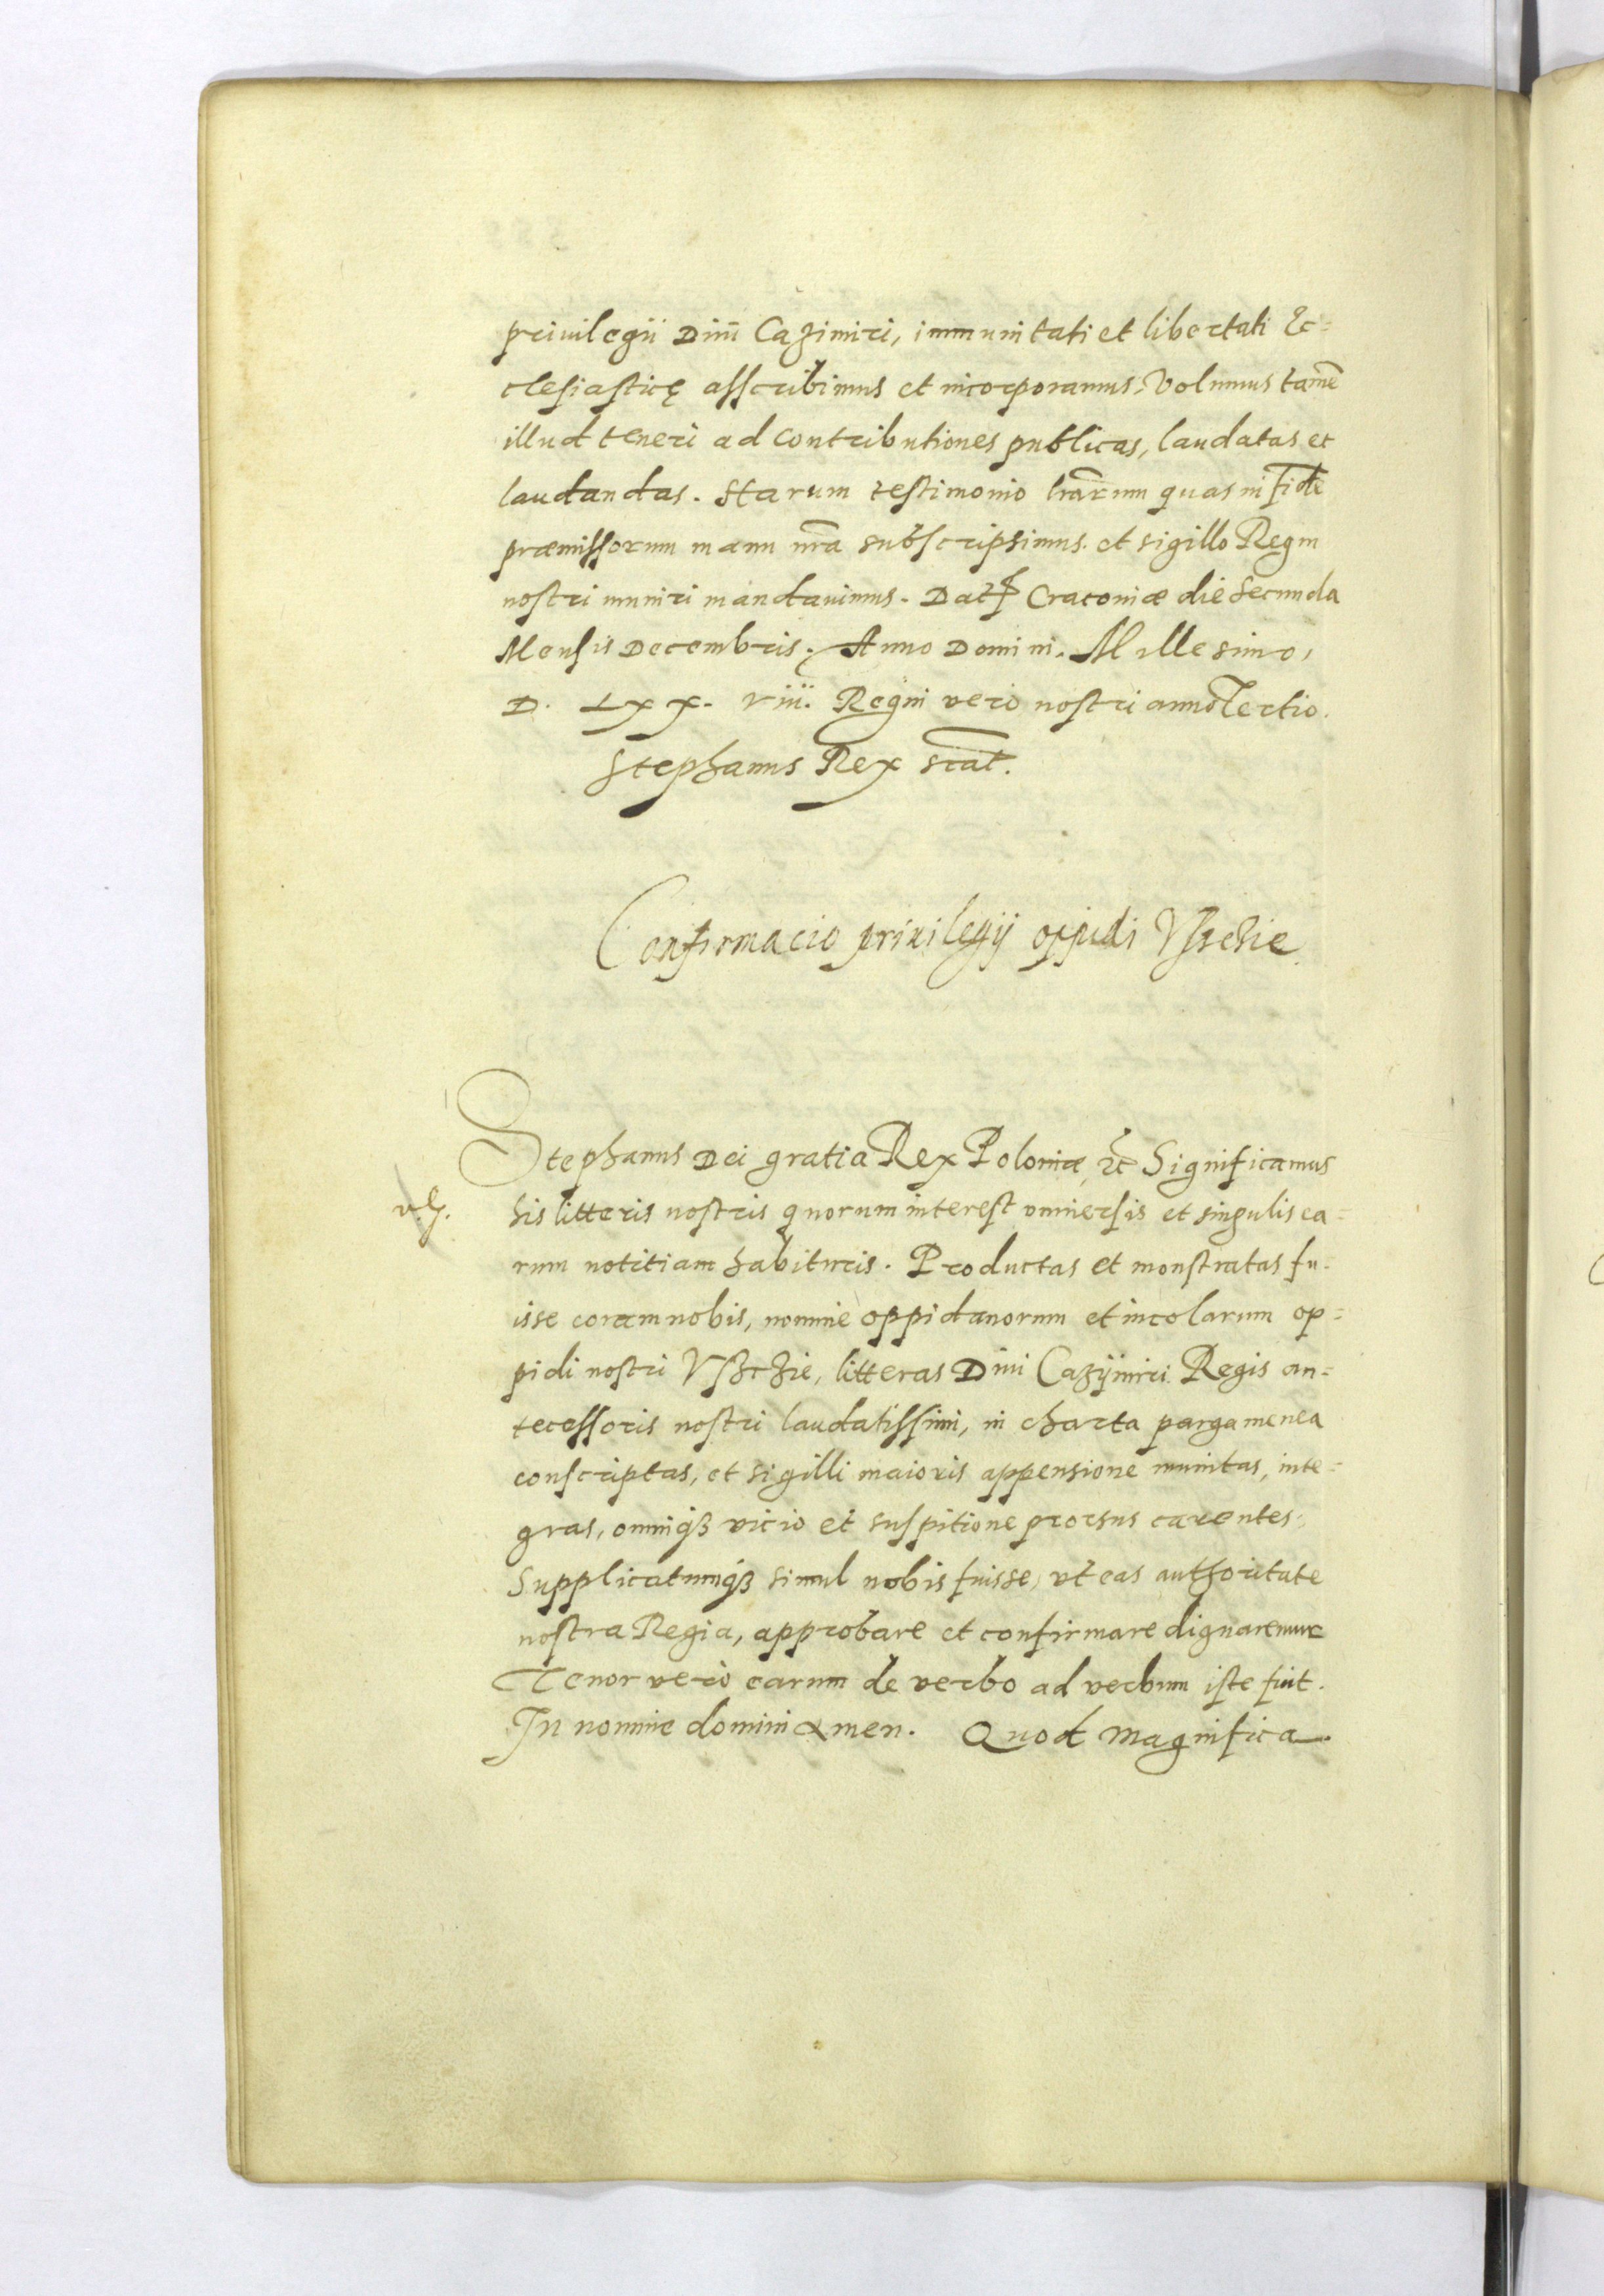 priuilegii Diui Cazimiri, immunitati et libertati Ec=
clesiasticę asscribimus et incorporamus. Volumus tamē
illud teneri ad contributiones publicas, laudatas et
laudandas. Harum testimonio lrārum quas in fidē
præmissorum manu nrā subscripsimus. et sigillo Regni
nostri muniri mandauimus. Dat Cracouiæ die Secunda
Mensis Decembris. Anno Domini. Millesimo,
D. Lxx. viii. Regni vero nostri anno Tertio.
Stephanus Rex
Confirmacio priuilegij oppidi Vschie
Stephanus Dei gratia Rex Poloniæ, etc Significamus
his litteris nostris quorum interest vniuersis et singulis ea=
rum notitiam habituris. Productas et monstratas fu=
isse coram nobis, nomine oppidanorum et incolarum op=
pidi nostri Vszczie, litteras Diui Cazijmiri Regis an=
tecessoris nostri laudatissimi, in charta pargamenea
conscriptas, et sigilli maioris appensione munitas, inte=
gras, omniqȝ vicio et suspitione prorsus carentes.
Supplicatumqȝ simul nobis fuisse, vt eas authoritate
nostra Regia, approbare et confirmare dignaremur
Tenor verò earum de verbo ad verbum iste fuit.
In nomine domini Amen. Quod magnifica